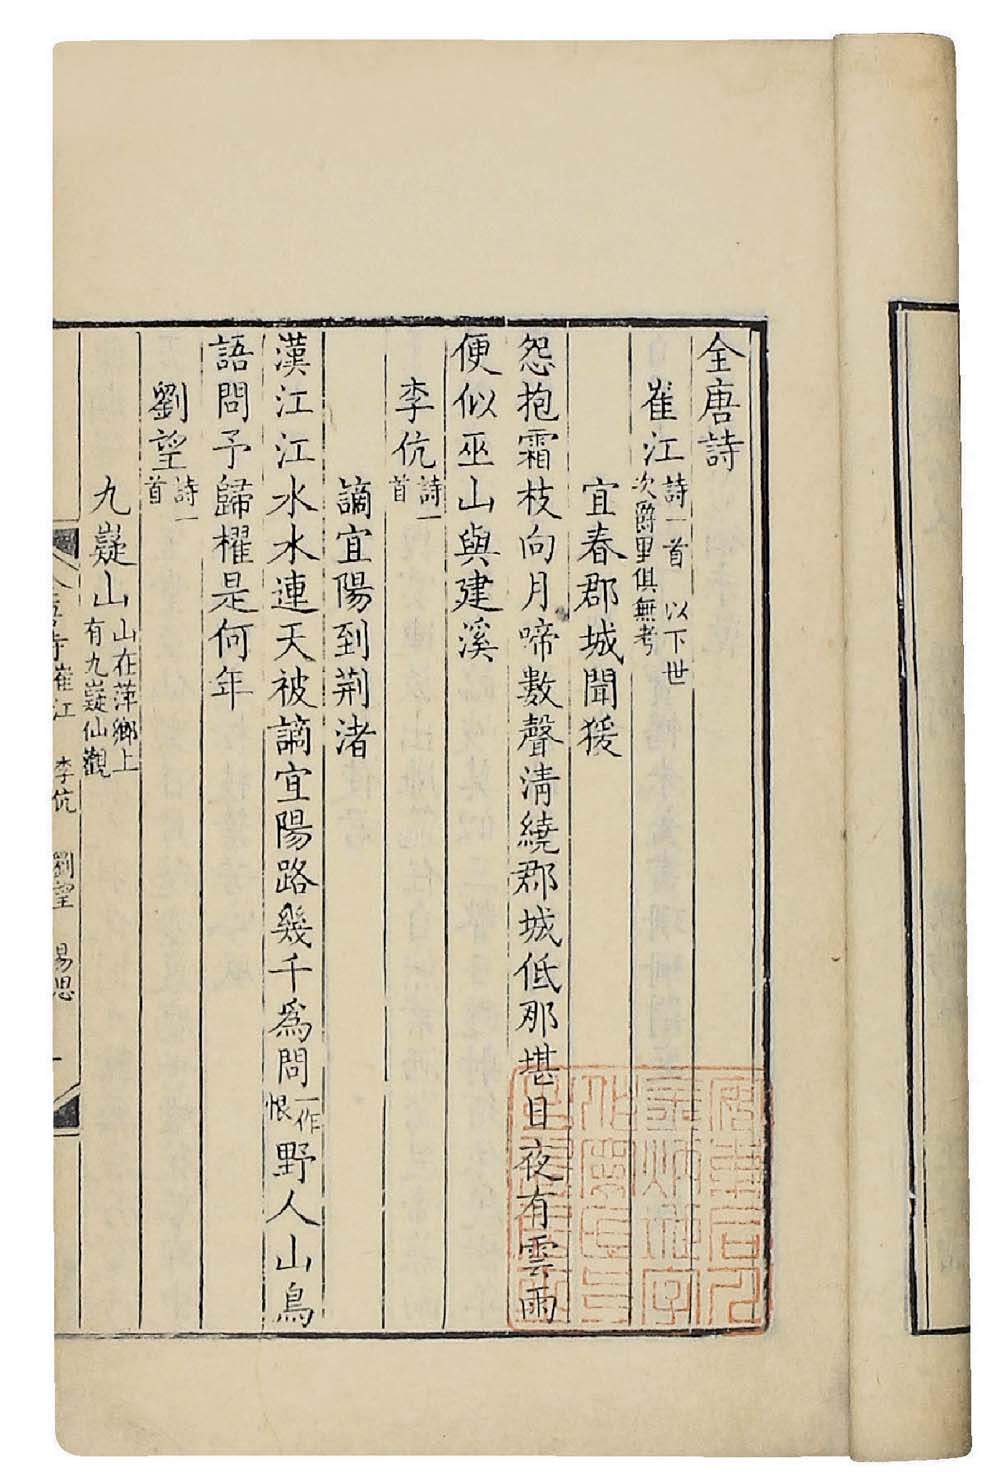 全唐詩
崔江詩一首 以下世次爵里俱無考
宜春郡城聞猨
怨抱霜枝向月啼數聲清繞郡城低那堪日夜有雲雨
便似巫山與建溪
李伉詩一首
謫宜陽到荆渚
漢江江水水連天被謫宜陽路幾千爲問一作恨野人山鳥
語問予歸櫂是何年
劉望詩一首
九嶷山山在萍鄉上有九嶷仙觀
崔江 李伉 劉望